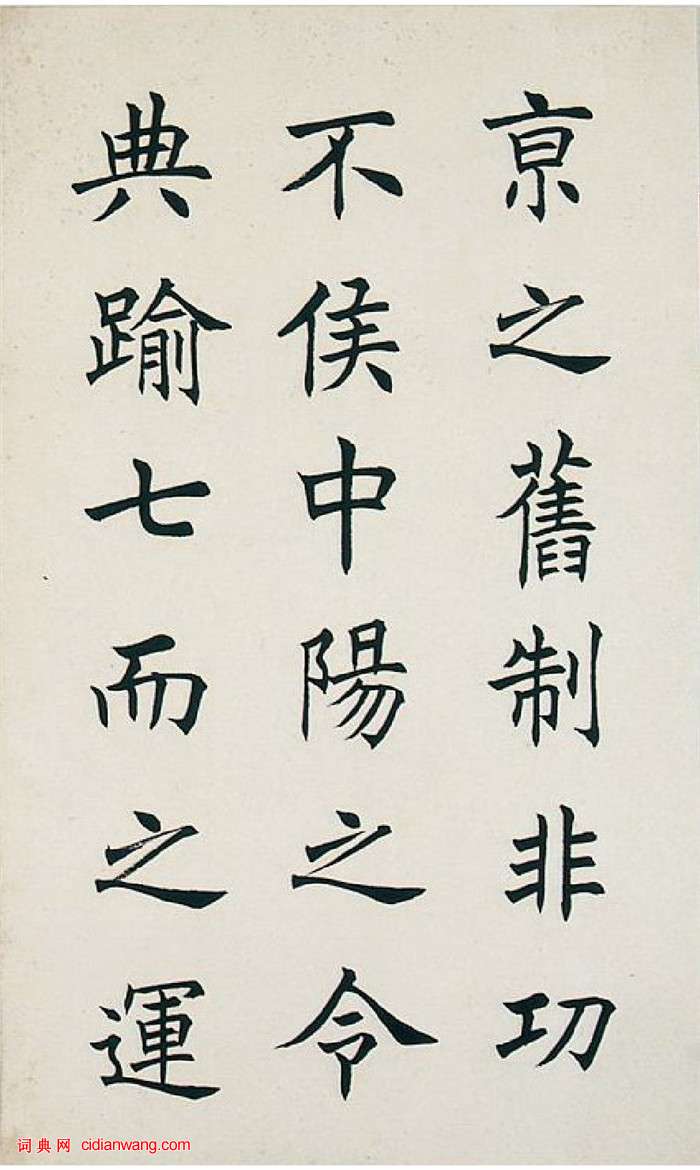 京之舊制非功
不侯中陽之令
典踰七而之運
词典网 cidianwang.com